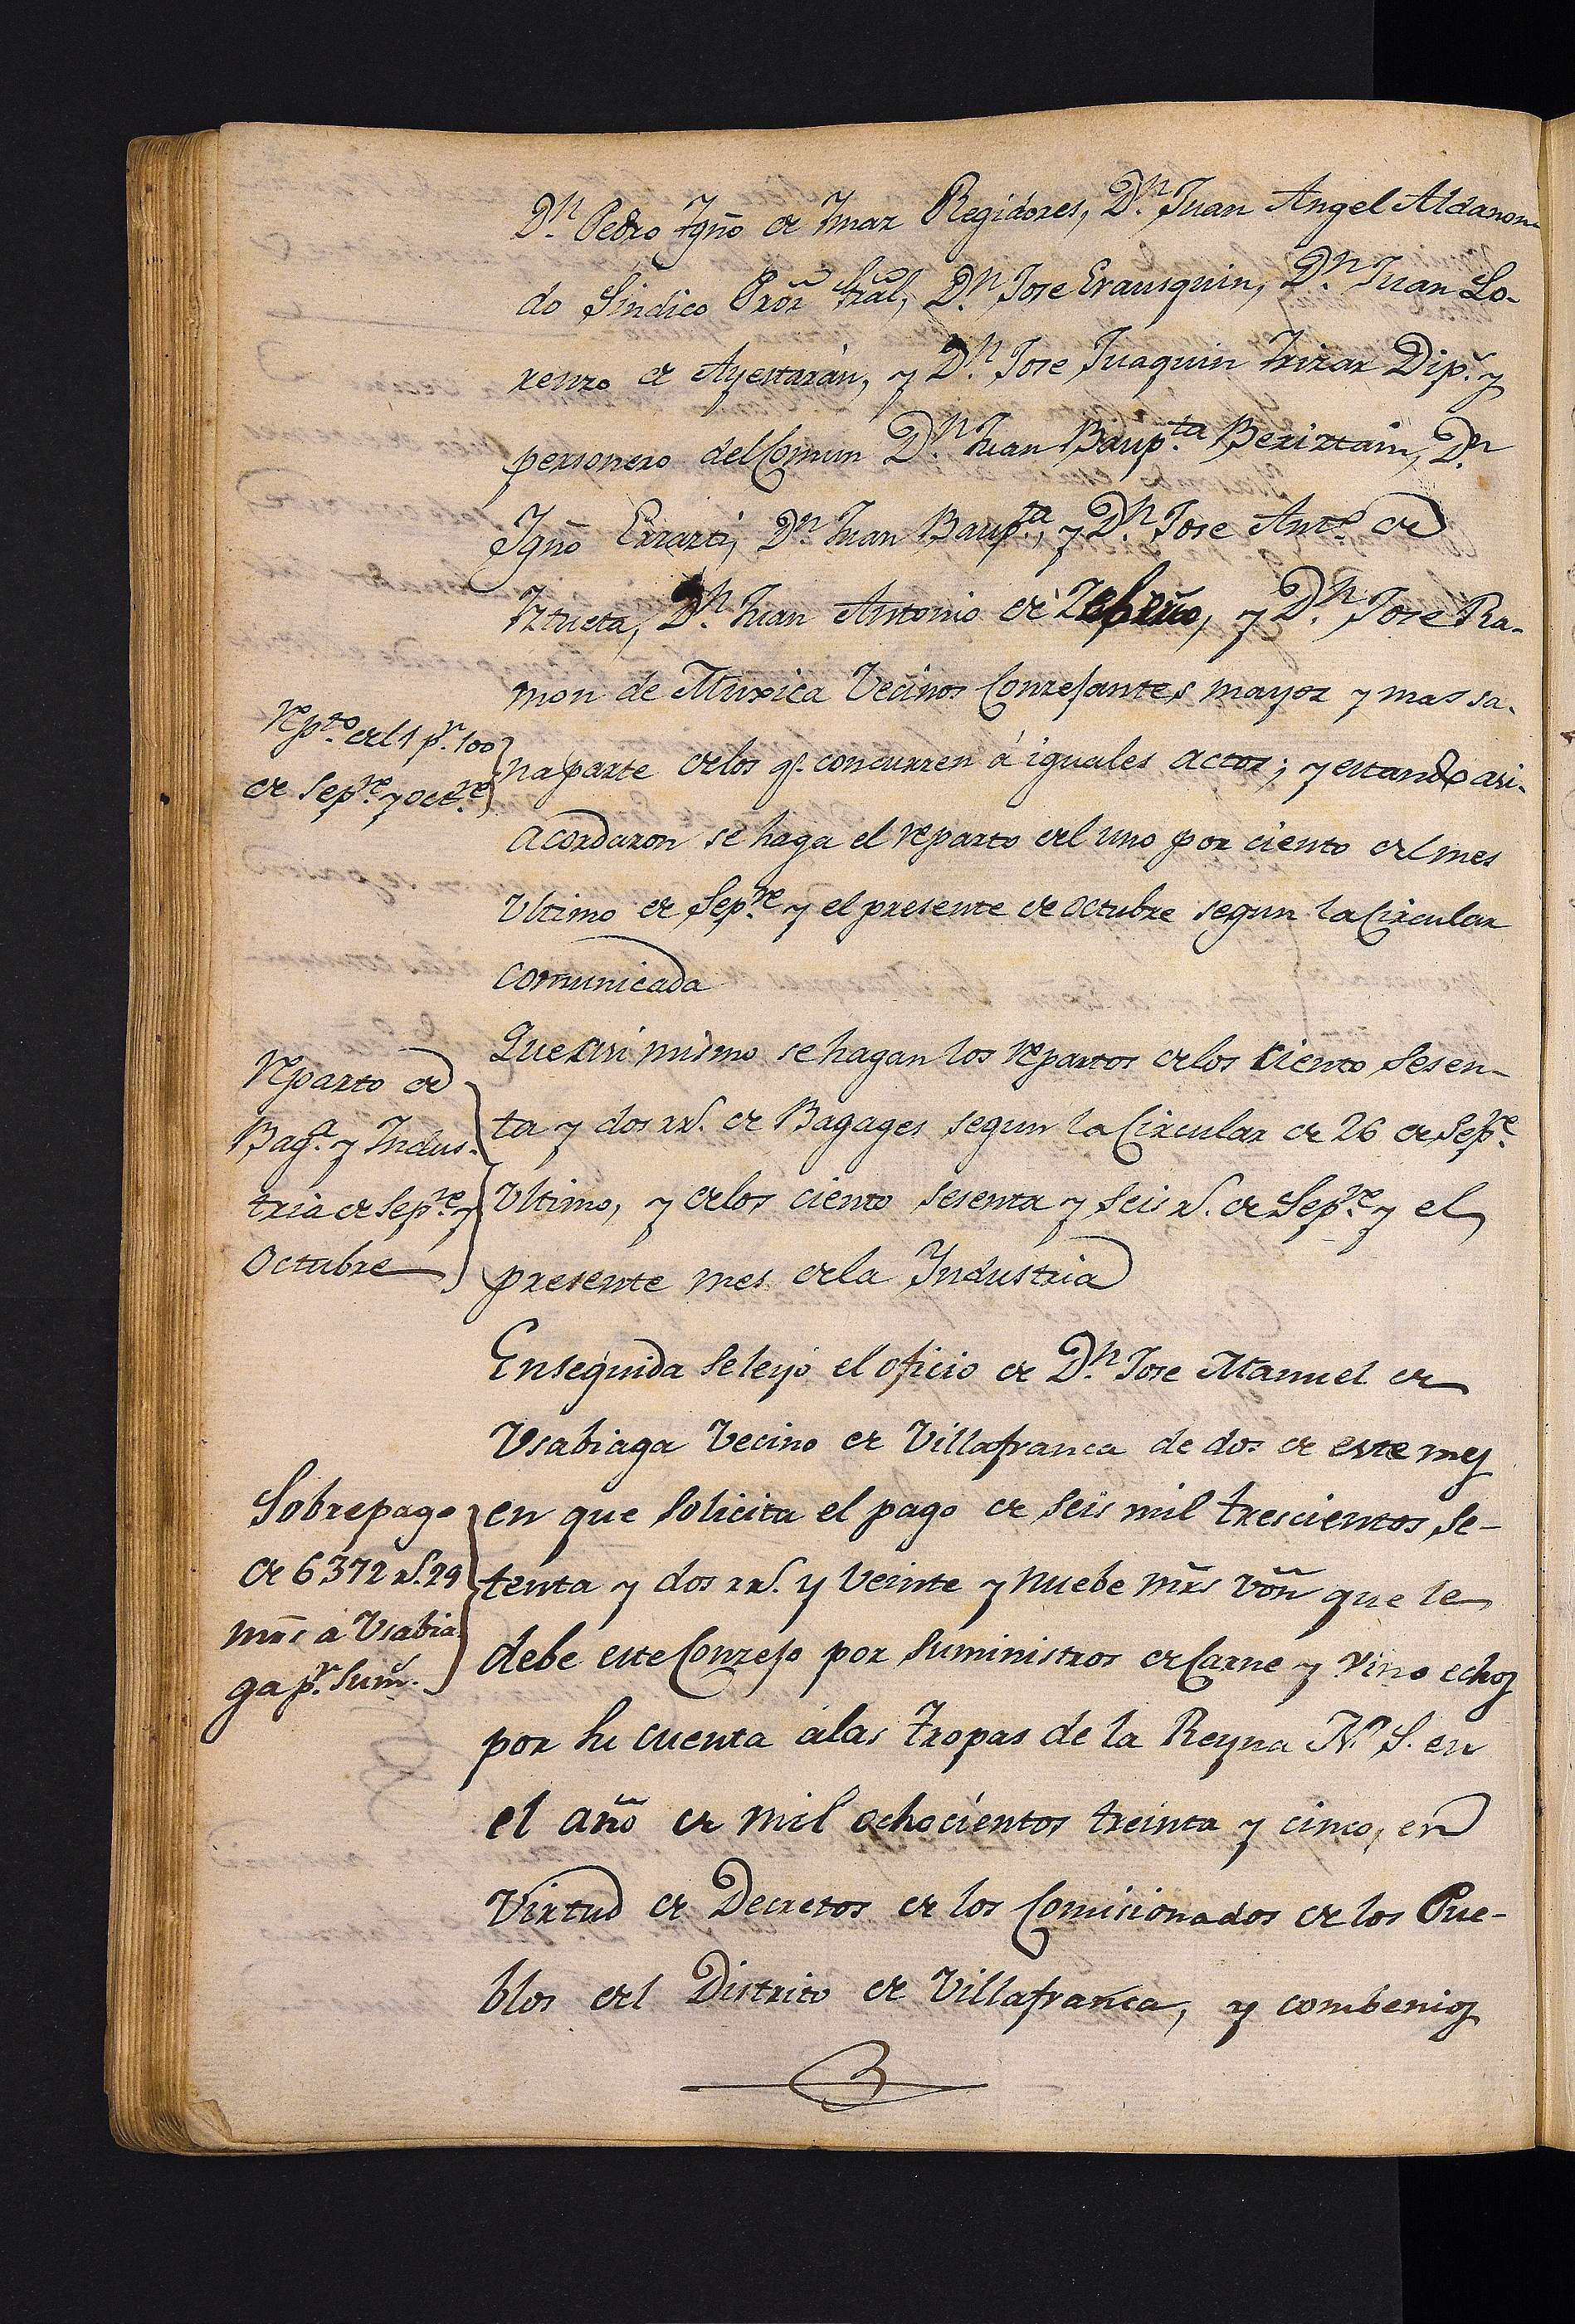 Dⁿ. Pedro Ygñô de Ymaz Regidores, Dⁿ. Juan Angel Aldanon-
do Sindico Prôr Gral, Dⁿ. Jose Erausquin, Dⁿ. Juan Lo-
renzo de Ayestarán, y Dⁿ. Jose Juaquin Irizar Dip.ˢ y
personero del Comun Dⁿ. Juan Baup.ᵗᵃ Beriztain, Dⁿ.
Ygñô Errazti, Dⁿ. Juan Baup.ᵗᵃ, y Dⁿ. Jose Ant.º de
Iztueta, Dⁿ. Juan Antonio de, y Dⁿ. Jose Ra-
mon de Muxica Vecinos Conzejantes mayor y mas sa-
Rep.ᵗᵒ del 1 p.ʳ 100
de Sep.ʳᵉ y Oct.ʳᵉ
na parte de los q.ᵉ concurren á iguales actos; y estando asi
acordaron se haga el reparto del uno por ciento del mes
Ultimo de Sep.ʳᵉ y el presente de Octubre segun la Circular
comunicada
Reparto de
Bag.ˢ y Indus-
tria de Sep.ʳᵉ y
Octubre
Que asi mismo se hagan los repartos de los ciento sesen-
ta y dos rrˢ. de Bagages segun la Circular de 26 de Sep.ᵉ
Ultimo, y de los ciento sesenta y seis rˢ. de Sep.ʳᵉ y el
presente mes de la Industria
Enseguida se leyó el oficio de Dⁿ. Jose Manuel de
Usabiaga Vecino de Villafranca de dos de este mes
Sobre pago
de 6372 rˢ. 29
mrs̃ á Usabia-
ga p.ʳ Sum̃.
en que solicita el pago de seis mil trescientos se-
tenta y dos rrˢ. y veinte y nuebe mr̃s vôn que le
debe este Conzejo por suministros de Carne y vino echos
por su cuenta á las tropas de la Reyna N.ª S. en
el año de mil ochocientos treinta y cinco, en
Virtud de Decretos de los Comisionados de los Pue-
blos del Distrito de Villafranca, y combenios